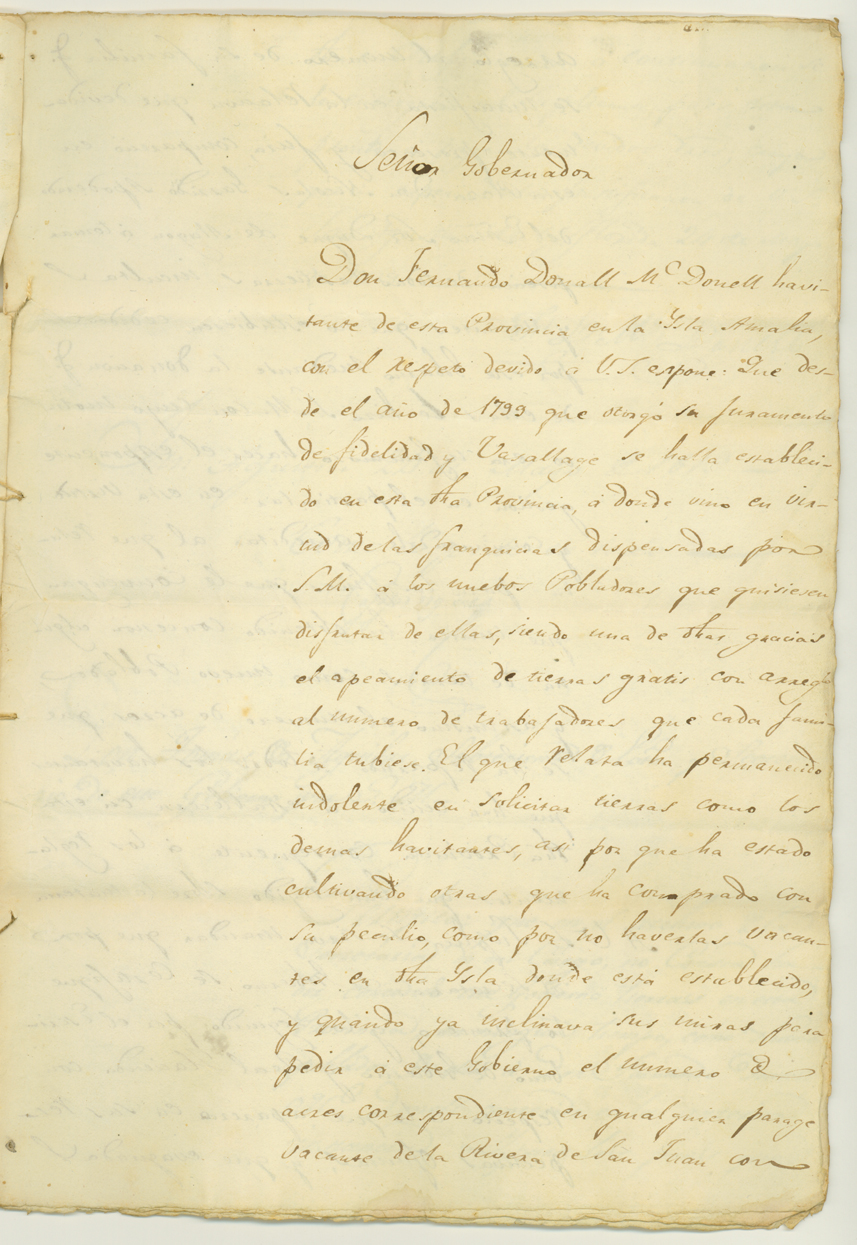 Señor Gobernador
Don Fernando Donall Mc Donell havi-
tante de esta Provincia en la Ysla Amalia,
con el respeto devido á V.S. espone: Que des-
de el año de 1799 que otorgó su juramento
de fidelidad y Vasallage se halla estableci-
do en esta dha Provincia, á donde vino en vir-
tud de las franquicias dispensadas por
S.M. á los nuebos Pobladores que quisiesen
disfrutar de ellas, siendo una de dhas gracias
el apeamiento de tierras gratis con arreglo
al numero de trabajadores que cada fami-
lia tubiese. El que relata ha permanecido
indolente en solicitar tierras como los
demas havitantes, asi por que ha estado
cultivando otras que ha comprado con
su peculio, como por no haverlas vacan-
tes en dha Ysla donde está establecido,
y quando ya inclinava sus miras para
pedir á este Gobierno el numero de
acres correspondiente en qualquier parage
vacante de la Rivera de San Juan con